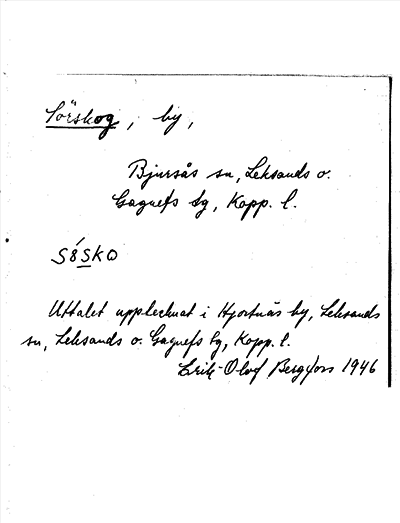 Sörskog, by,
Bjursås sn, Leksands o.
Gagnefs tg, Kopp. l.
s8́sko
Uttalet upptecknat i Hjortnäs by, Leksands
sn, Leksands o. Gagnefs tg, Kopp. l.
Erik-Olof Bergfors 1946